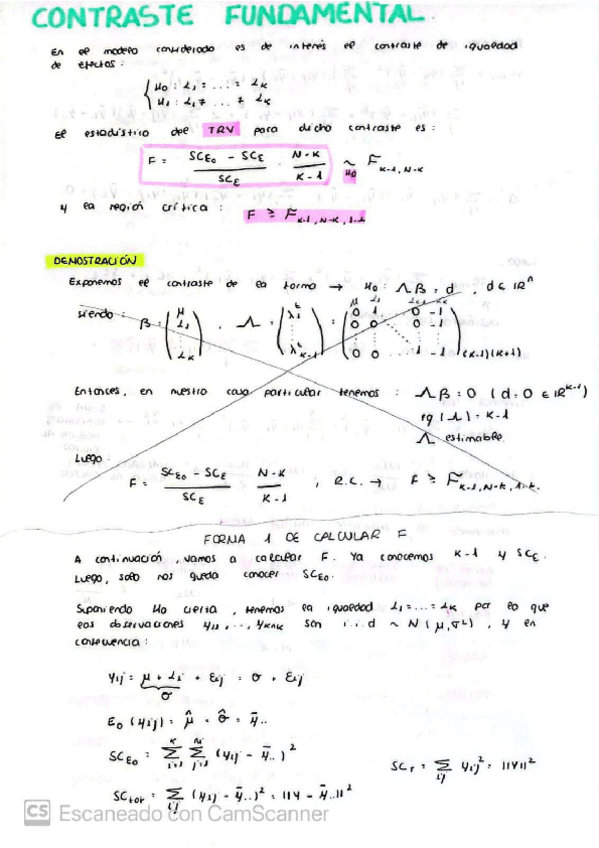 CONTRASTE FUNDAMENTAL
En el modelo considerado es de interés el contraste de igualdad
de efectos :
{ H0 : α1 = ... = αk
H1 : α1 ≠ ... ≠ αk
El estadístico del TRV para dicho contraste es :
F = (SCE0 - SCE / SCE) · (N-K / K-1) ~H0 FK-1, N-K
y la región crítica : F ≥ FK-1, N-K, 1-α
DEMOSTRACIÓN
Exponemos el contraste de la forma → H0 : Λβ = d , d ∈ IRⁿ
siendo : β = (μ α1 ⋮ αk) , Λ = (λ1ᵗ ⋮ λᵗK-1) = (0 1 ... 0 -1 / 0 0 ... 0 -1 / ⋮ / 0 0 ... 1 -1)(K-1)(K+1)
Entonces, en nuestro caso particular tenemos : Λβ = 0 (d = 0 ∈ IRᴷ⁻¹)
rg (Λ) = K-1
Λ estimable.
Luego :
F = (SCE0 - SCE / SCE) (N-K / K-1) ; R.C. → F ≥ FK-1, N-K, 1-α
FORMA 1 DE CALCULAR F
A continuación , vamos a calcular F. Ya conocemos K-1 y SCE.
Luego, solo nos queda conocer SCE0.
Suponiendo H0 cierta , tenemos la igualdad α1 = ... = αk por lo que
las observaciones y11, ..., yKnK son i.i.d ~ N(μ, σ²) , y en
consecuencia :
yij = μ + αi + εij = σ + εij
σ
E0 (yij) = μ̂ = σ̂ = ȳ..
SCE0 = Σ Σ (yij - ȳ..)²
SCT = Σ yij² = ||Y||²
SCtot = Σ (yij - ȳ..)² = ||Y - ȳ..||²
CS Escaneado con CamScanner